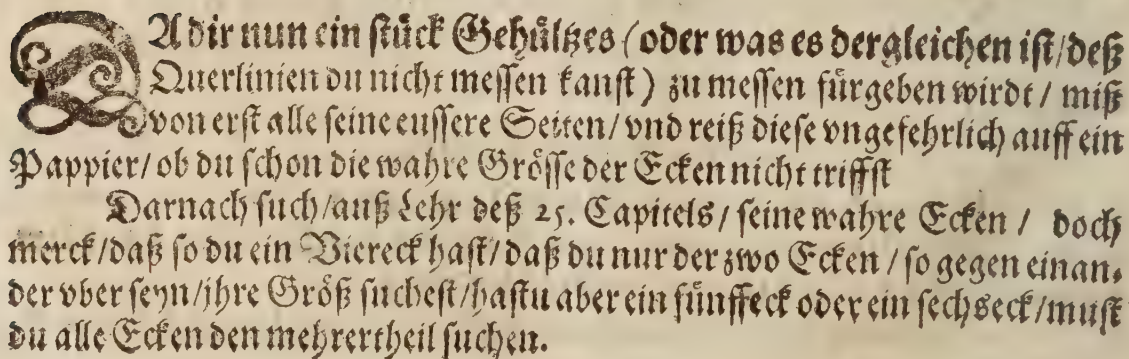 DA dir nun ein stück Gehültzes (oder was es dergleichen ist/deß
Querlinien du nicht messen kanst) zu messen fürgeben wirdt / miß
von erst alle seine eussere Seiten/vnd reiß diese vngefehrlich auff ein
Pappier/ob du schon die wahre Grösse der Ecken nicht triffst
Darnach such/auß Lehr deß 25. Capitels/seine wahre Ecken / doch
merck/daß so du ein Viereck hast/daß du nur der zwo Ecken/so gegen einan-
der vber seyn/jhre Größ suchest/hastu aber ein fünffeck oder ein sechseck/must
du alle Ecken den mehrertheil suchen.